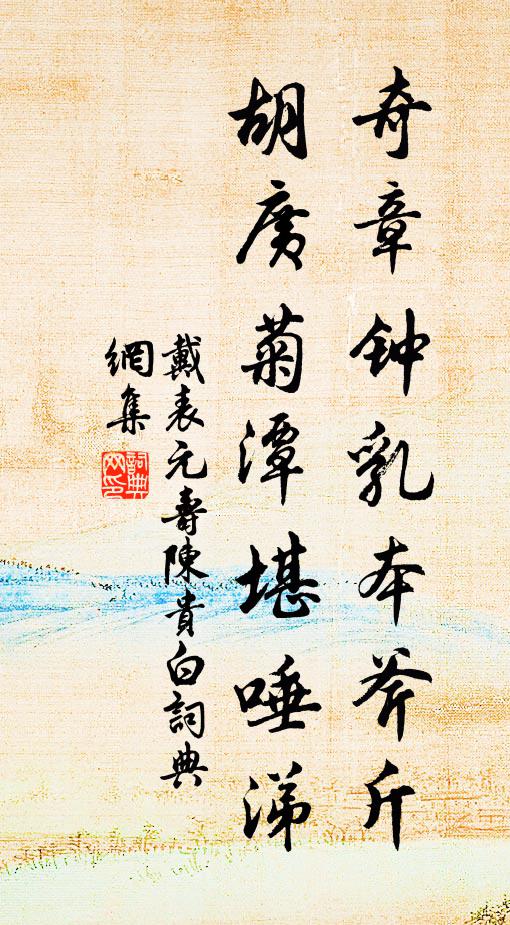 奇章钟乳本斧斤
胡廣菊潭堪唾涕
戴表元壽陳貴白詞典
網集
詞典網印